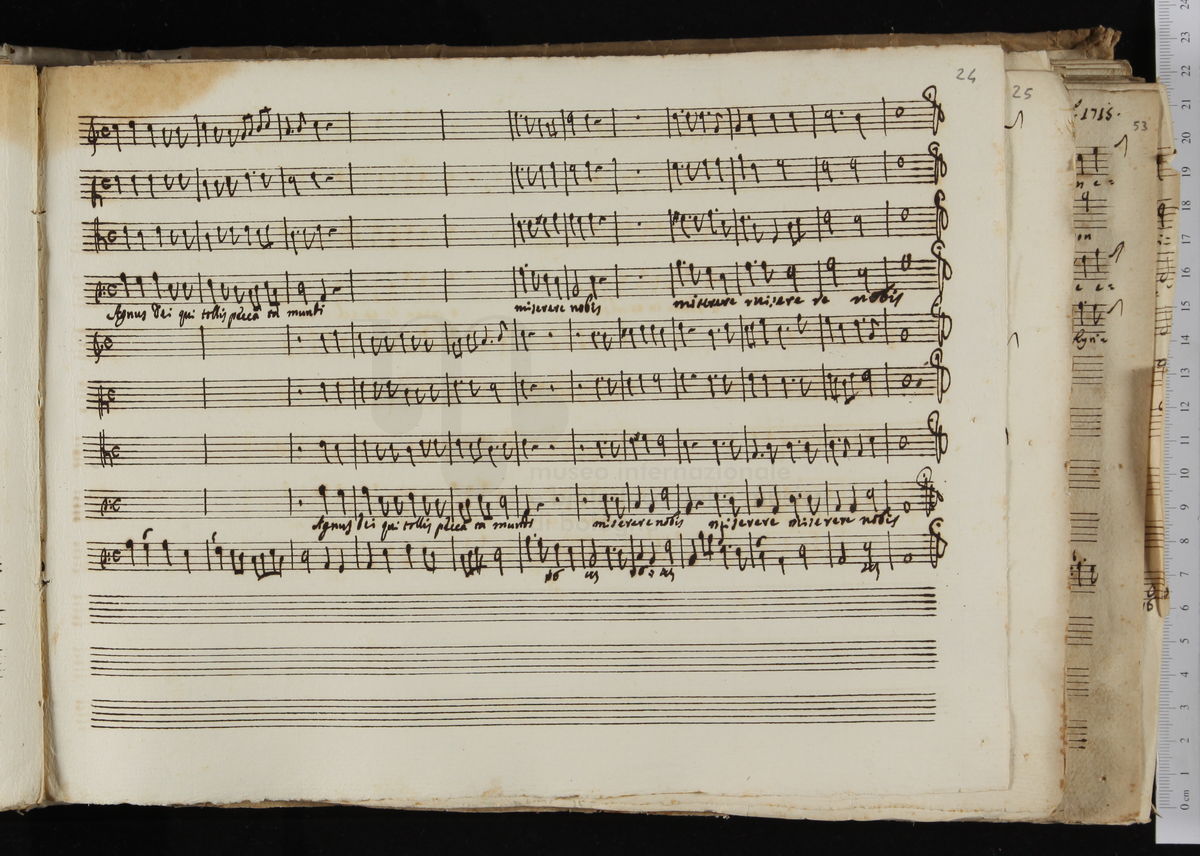 24
25
1715.
53
Agnus Dei qui tollis peccā ta munti
miserere nobis
miserere miserere re nobis
Kyrie
museo internazionale
Agnus Dei qui tollis peccā ta munti
miserere nobis
miserere miserere nobis
24
23
22
21
20
19
18
17
16
15
14
13
12
11
10
9
8
7
6
5
4
3
2
1
0 cm